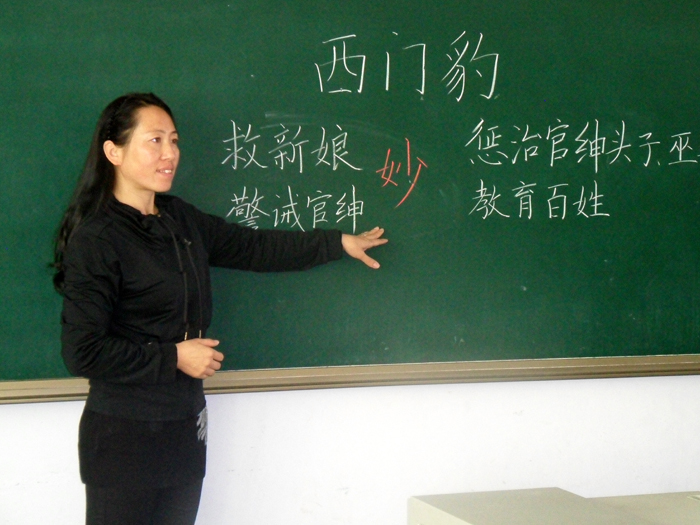 西门豹
救新娘
警诫官绅
妙
惩治官绅头子、巫
教育百姓